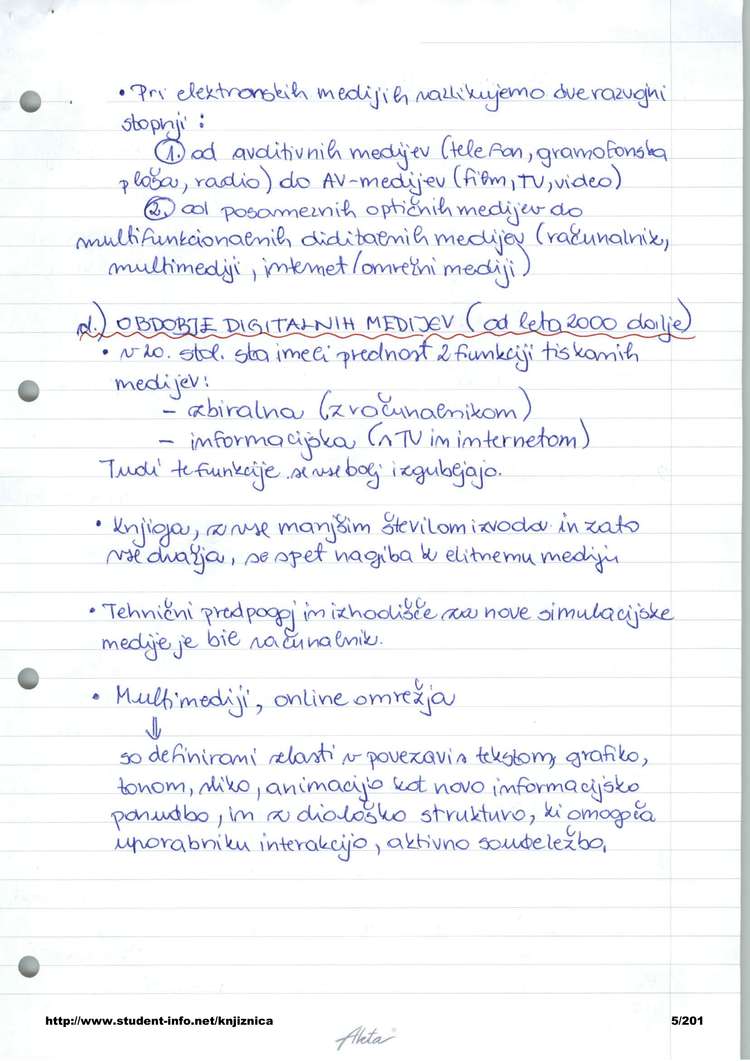 • Pri elektronskih medijih razlikujemo dve razvojni
stopnji :
1. od avditivnih medijev (telefon, gramofonska
plošča, radio) do AV-medijev (film, TV, video)
2. od posameznih optičnih medijev do
multifunkcionalnih diditalnih medijev (računalnik,
multimediji, internet/omrežni mediji)
d.) OBDOBJE DIGITALNIH MEDIJEV (od leta 2000 dalje)
• v 20. stol. sta imeli prednost 2 funkciji tiskanih
medijev:
- zbiralna (z računalnikom)
- informacijska (s TV in internetom)
Tudi te funkcije se vse bolj izgubljajo.
• Knjiga, z vse manjšim številom izvodov in zato
vse dražja, se spet nagiba k elitnemu mediju
• Tehnični predpogoj in izhodišče za nove simulacijske
medije je bil računalnik.
• Multimediji, online omrežja
⇓
so definirani zlasti v povezavi s tekstom, grafiko,
tonom, sliko, animacijo kot novo informacijsko
ponudbo, in z dialoško strukturo, ki omogoča
uporabniku interakcijo, aktivno soudeležbo,
http://www.student-info.net/knjiznica
5/201
Aketa